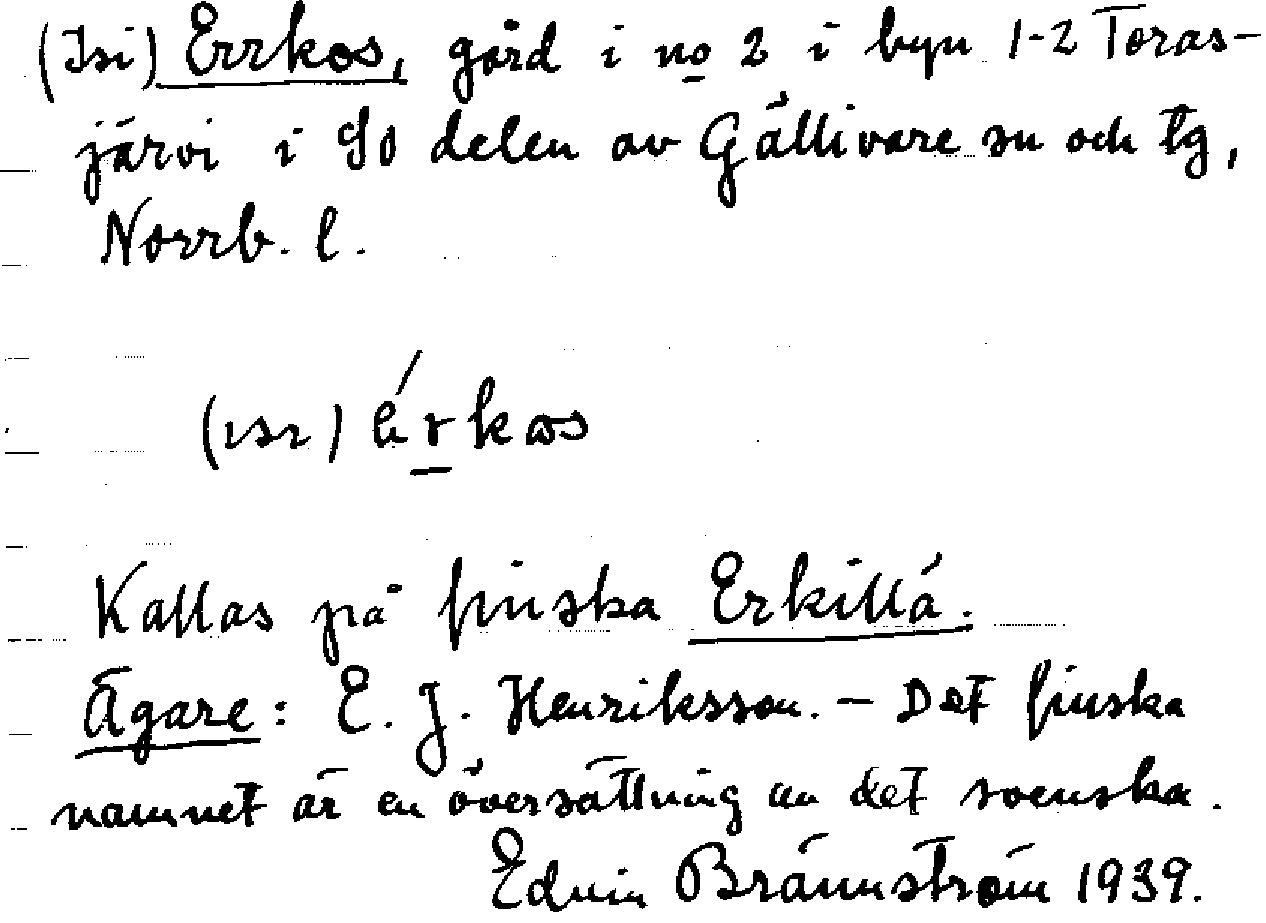 (Isi) Errkos, gård i no 2 i byn 1-2 Toras-
järvi i SO delen av Gällivare sn och tg,
Norrb. l.
(ısı) érkɷs
Kallas på finska Erkillä.
Ägare: E. J. Henriksson. – Det finska
namnet är en översättning av det svenska.
Edvin Brännström 1939.